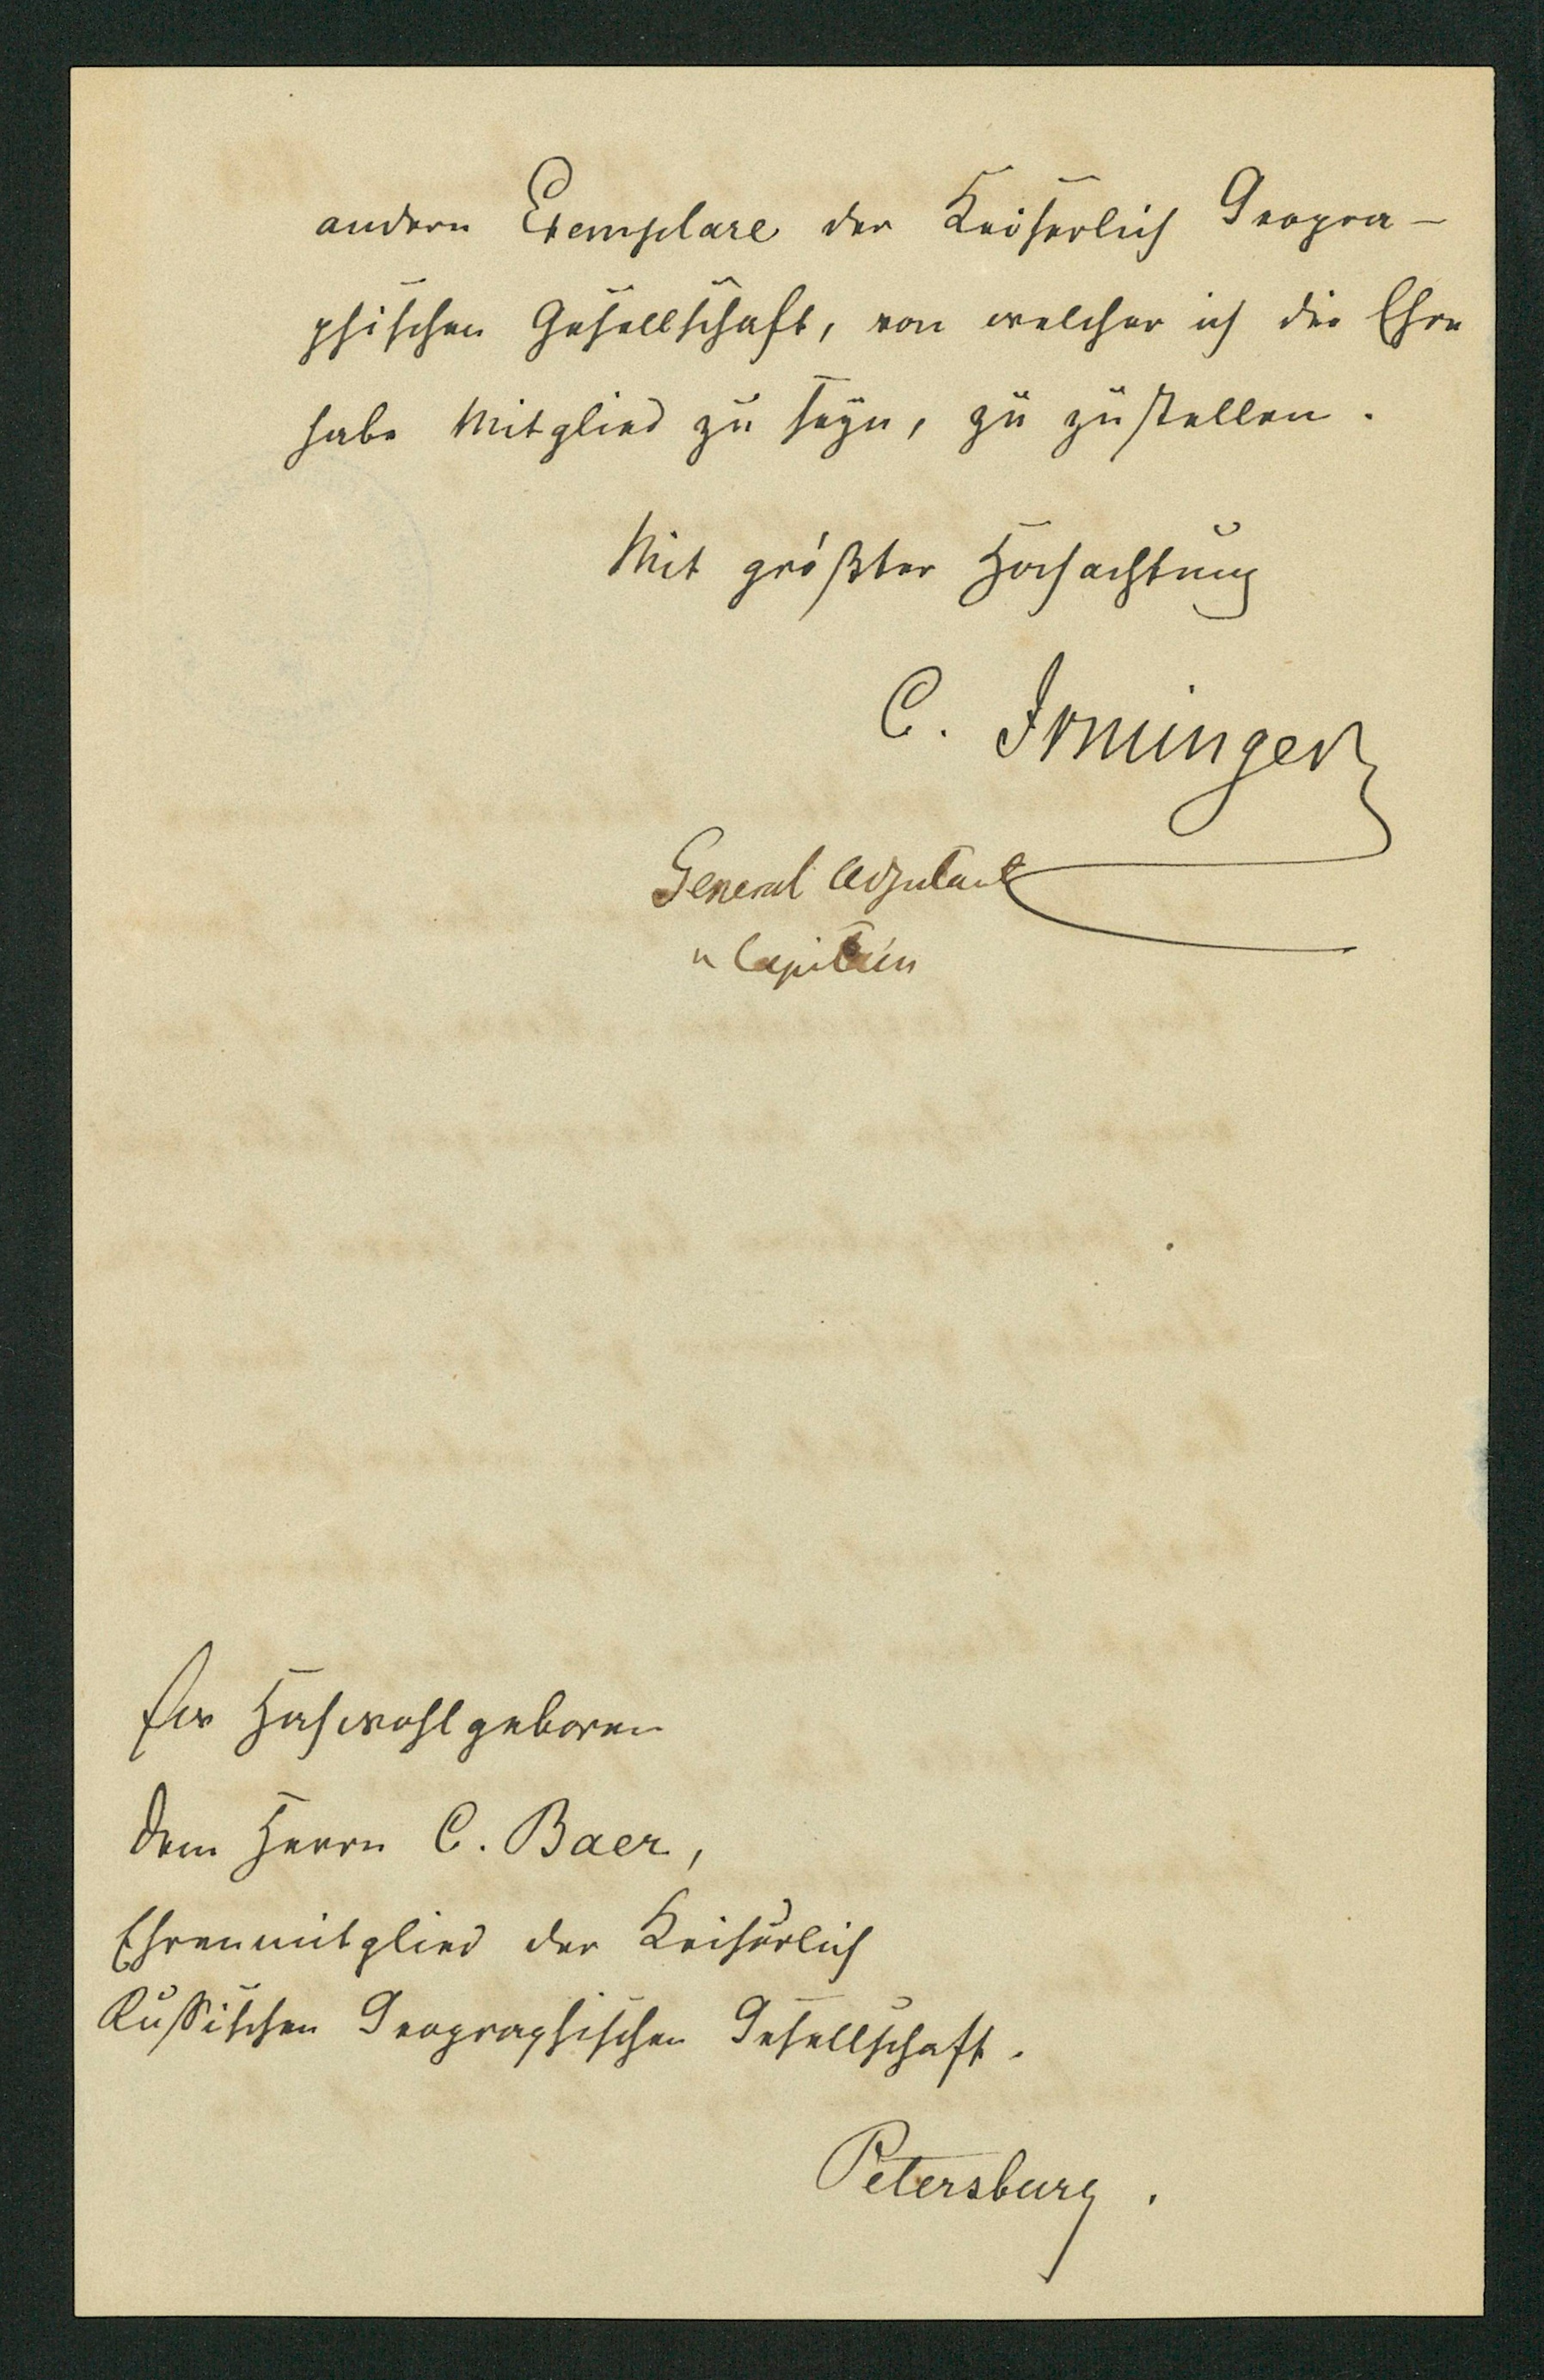 andern Exemplare der Keiserlich Geogra-
phischen Gesellschaft, von welcher ich die Ehre
habe Mitglied zu seyn, zu zustellen.
Mit größter Hochachtung
C. Irminger
General Adjutant
u Capitain
Hochwohlgeboren
dem Herrn C. Baer,
Ehrenmitglied der Keiserlich
Russischen Geographischen Gesellschaft.
Petersburg.